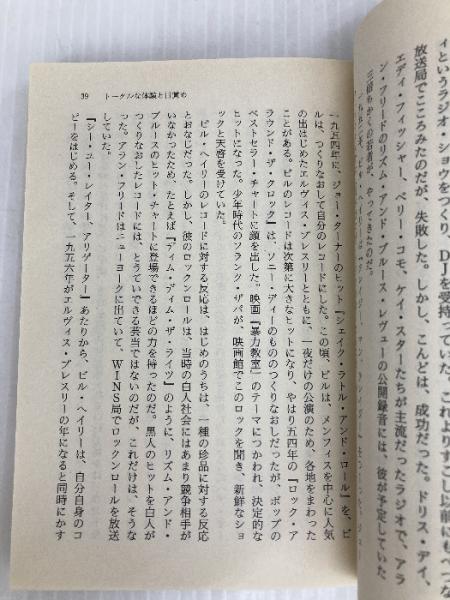 ィというラジオ・ショウをつくり、DJを受持っていた。これよりすこし以前にもべつな
放送局でこころみたのだが、失敗だった。しかし、こんどは、成功だった。ドリス・デイ、
エディ・フィッシャー、ペリー・コモ、ケイ・スターたちが主流だったラジオで、アラ
ン・フリードのリズム・アンド・ブルース・レヴューの公開録音には、彼が予定していた
三倍もの
やってきたのだ。
39 トータルな体験と目覚め
一九五四年に、ジョー・ターナーのヒット『シェイク・ラトル・アンド・ロール』を、ビ
ルは、つくりなおして自分のレコードにした。この頃、ビルは、メンフィスを中心に人気
の出はじめたエルヴィス・プレスリーとともに、一夜だけの公演のため、各地をまわった
ことがある。ビルのレコードは次第に大きなヒットになり、やはり五四年の『ロック・ア
ラウンド・ザ・クロック』は、ソニー・デイーのもののつくりなおしだったが、ポップの
ベストセラー・チャートに顔を出した。映画『暴力教室』のテーマにつかわれ、決定的な
ヒットになった。少年時代のフランク・ザパが、映画館でこのロックを聞き、新鮮なショ
ックと天啓を受けていた。
ビル・ヘイリーのレコードに対する反応は、はじめのうちは、一種の珍品に対する反応
とおなじだった。しかし、彼のロックンロールは、当時の白人社会にはあまり競争相手が
いなかったため、たとえば『ディム・ディム・ザ・ライツ』のように、リズム・アンド・
ブルースのヒット・チャートに登場できるほどの力を持ったのだ。黒人のヒットを白人が
つくりなおしたレコードには、とうていできる芸当ではないのだが、これだけは、そうな
った。アラン・フリードはニューヨークに出ていて、WINS局でロックンロールを放送
『シー・ユー・レイター、アリゲーター』あたりから、ビル・ヘイリーは、自分自身のコ
ピーをはじめる。そして、一九五六年がエルヴィス・プレスリーの年になると同時にかす